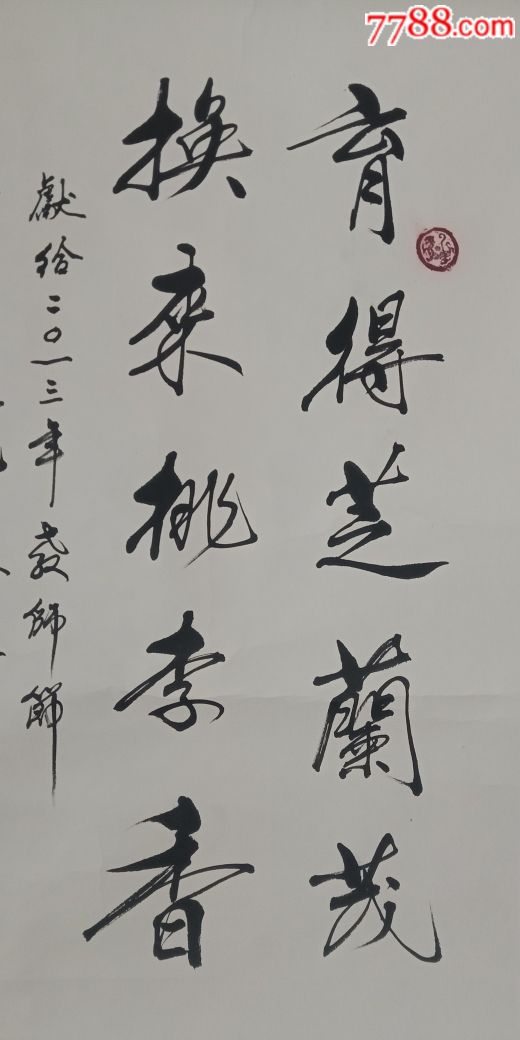 7788.com
育得芝蘭茂
換來桃李香
獻给二〇一三年教師節